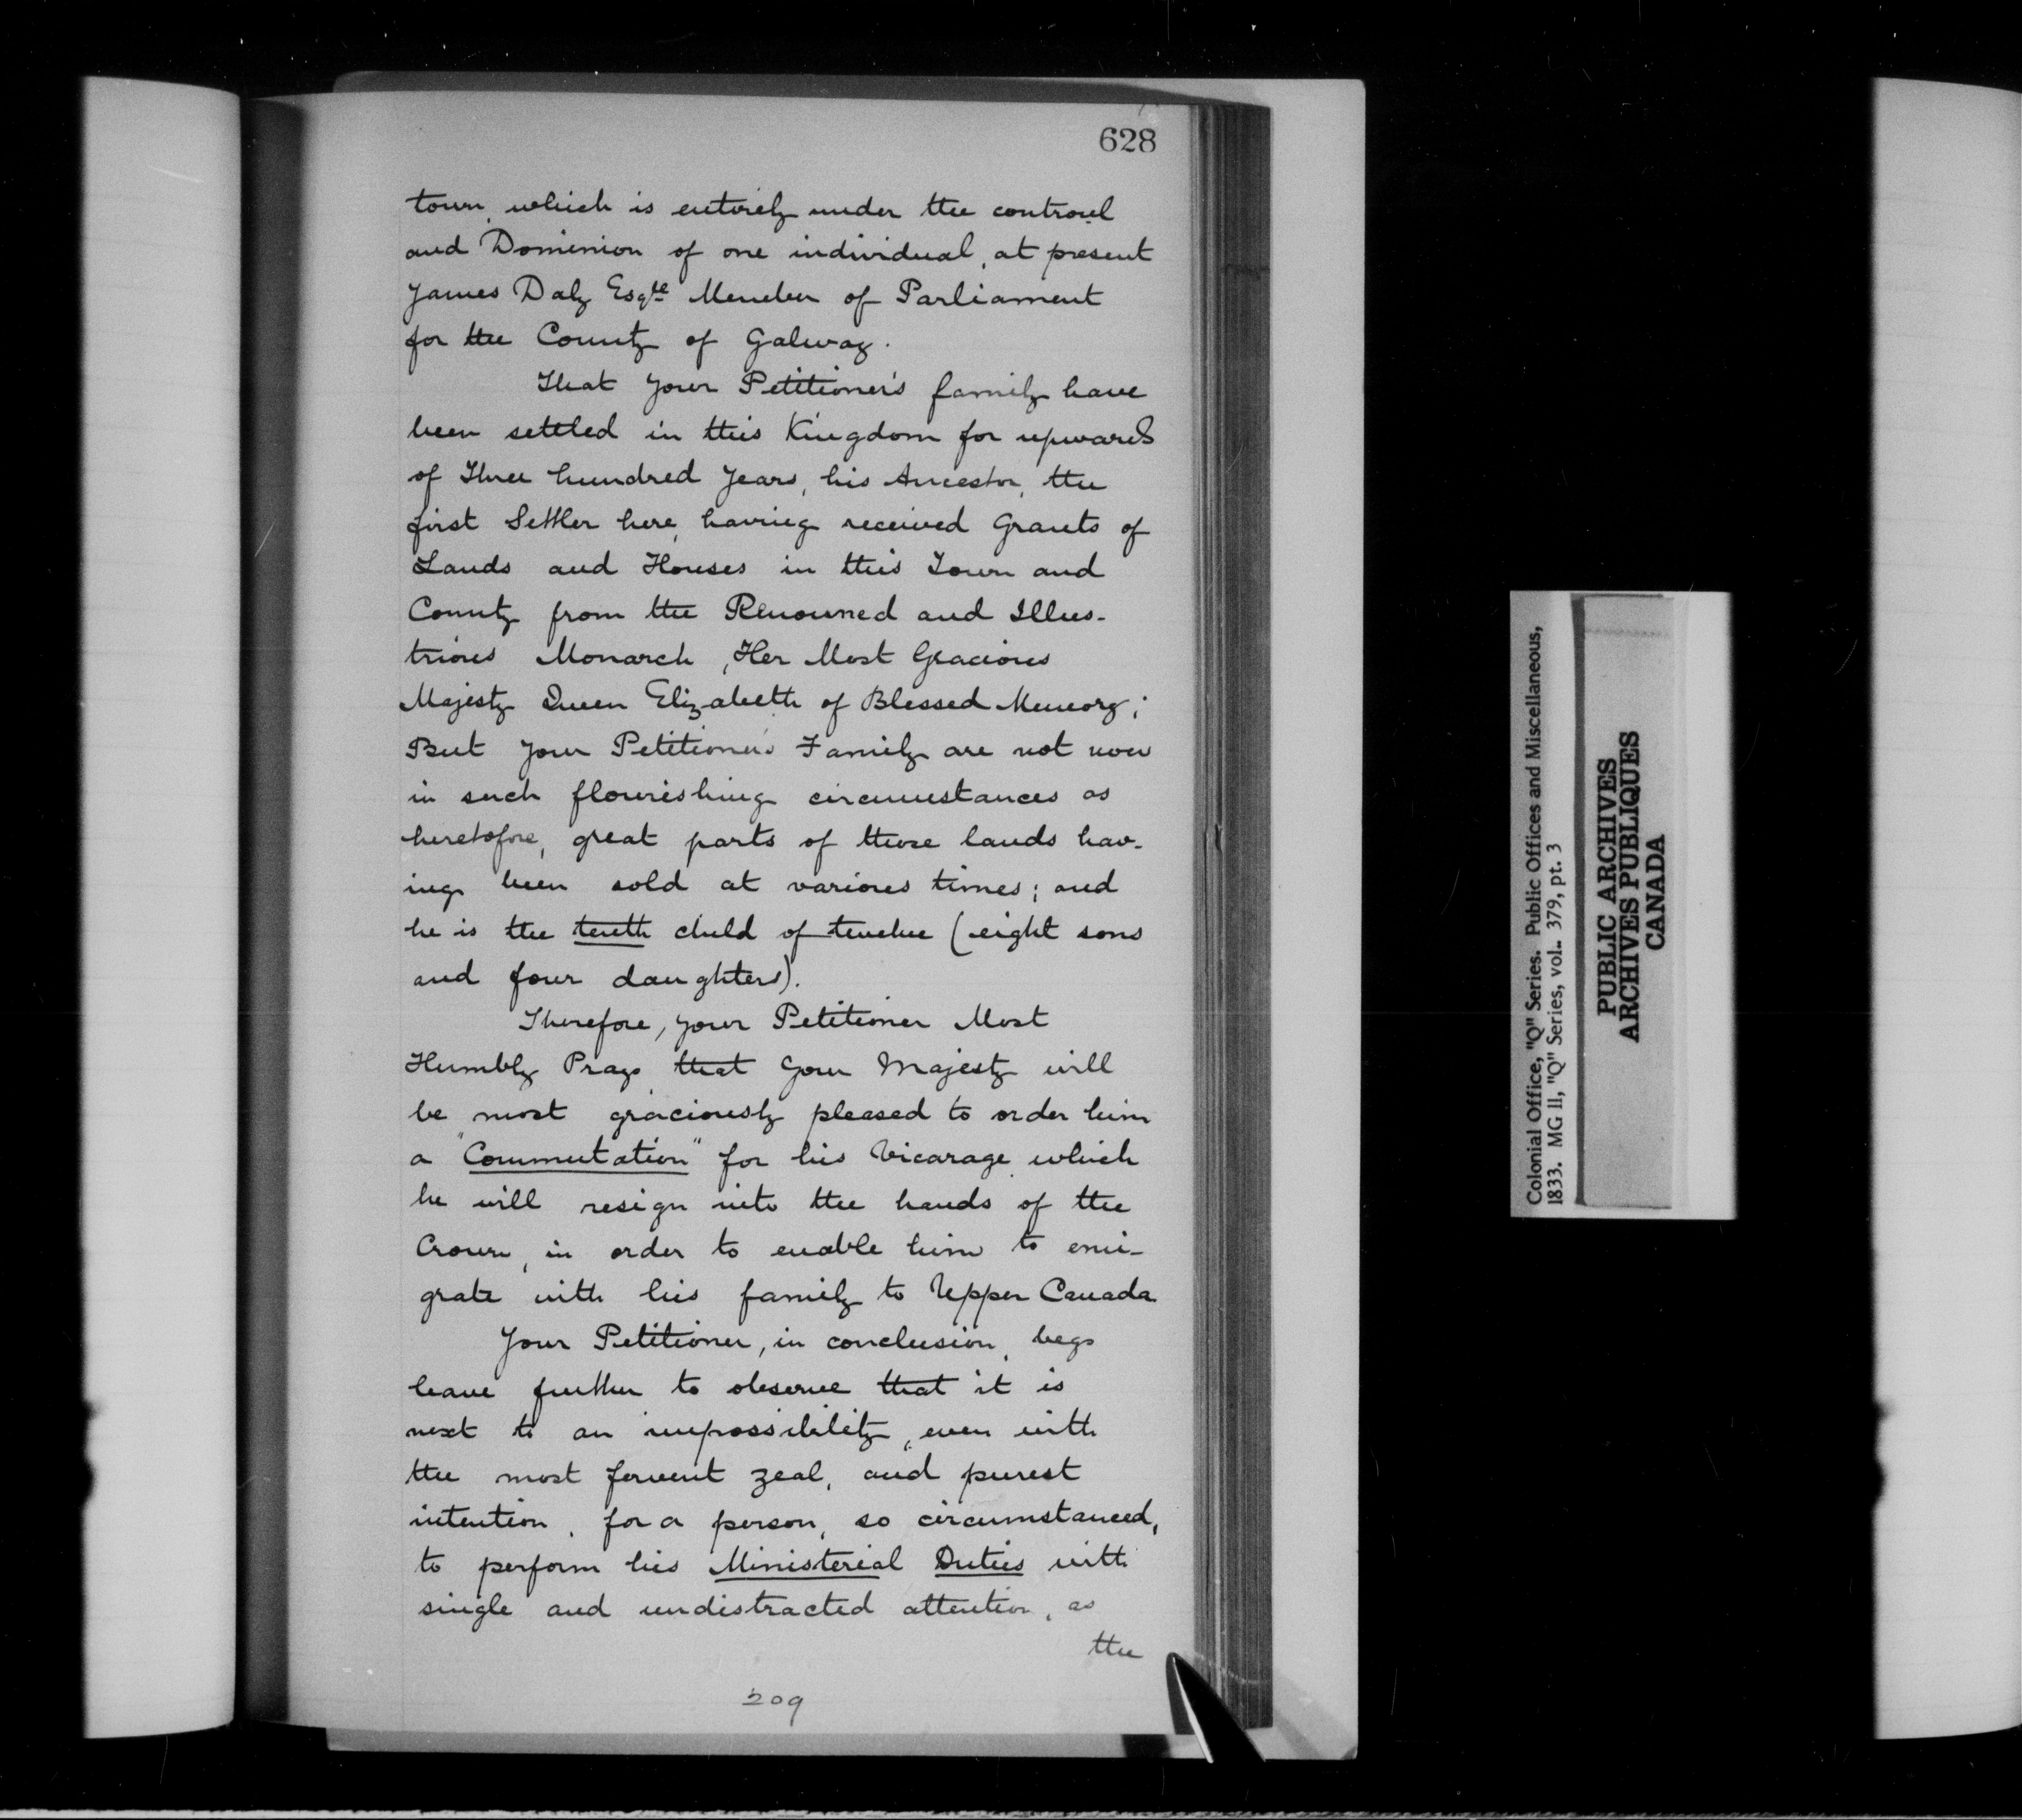 628
town, which is entirely under the controul
and Dominion of one individual, at present
James Daly Esqre Member of Parliament
for the County of Galway.
That your Petitioner's family have
been settled in this Kingdom for upwards
of Three hundred Years, his Ancestor, the
first Settler here, having received Grants of
Lands and Houses in this Town and
County from the Renowned and Illus-
trious Monarch, Her Most Gracious
Majesty Queen Elizabeth of Blessed Memory;
But your Petitioner's Family are not now
in such flourishing circumstances as
heretofore, great parts of those lands hav-
ing been sold at various times; and
he is the tenth child of twelve (eight sons
and four daughters).
Therefore, your Petitioner Most
Humbly Prays that Your Majesty will
be most graciously pleased to order him
a "Commutation" for his Vicarage which
he will resign into the hands of the
Crown, in order to enable him to emi-
grate with his family to Upper Canada.
Your Petitioner, in conclusion, begs
leave further to observe that it is
next to an impossibility, even with
the most fervent zeal, and purest
intention, for a person, so circumstanced,
to perform his Ministerial Duties with
single and undistracted attention, as
the
209
Colonial Office, "Q" Series. Public Offices and Miscellaneous,
1833. MG 11, "Q" Series, vol. 379, pt. 3
PUBLIC ARCHIVES
ARCHIVES PUBLIQUES
CANADA